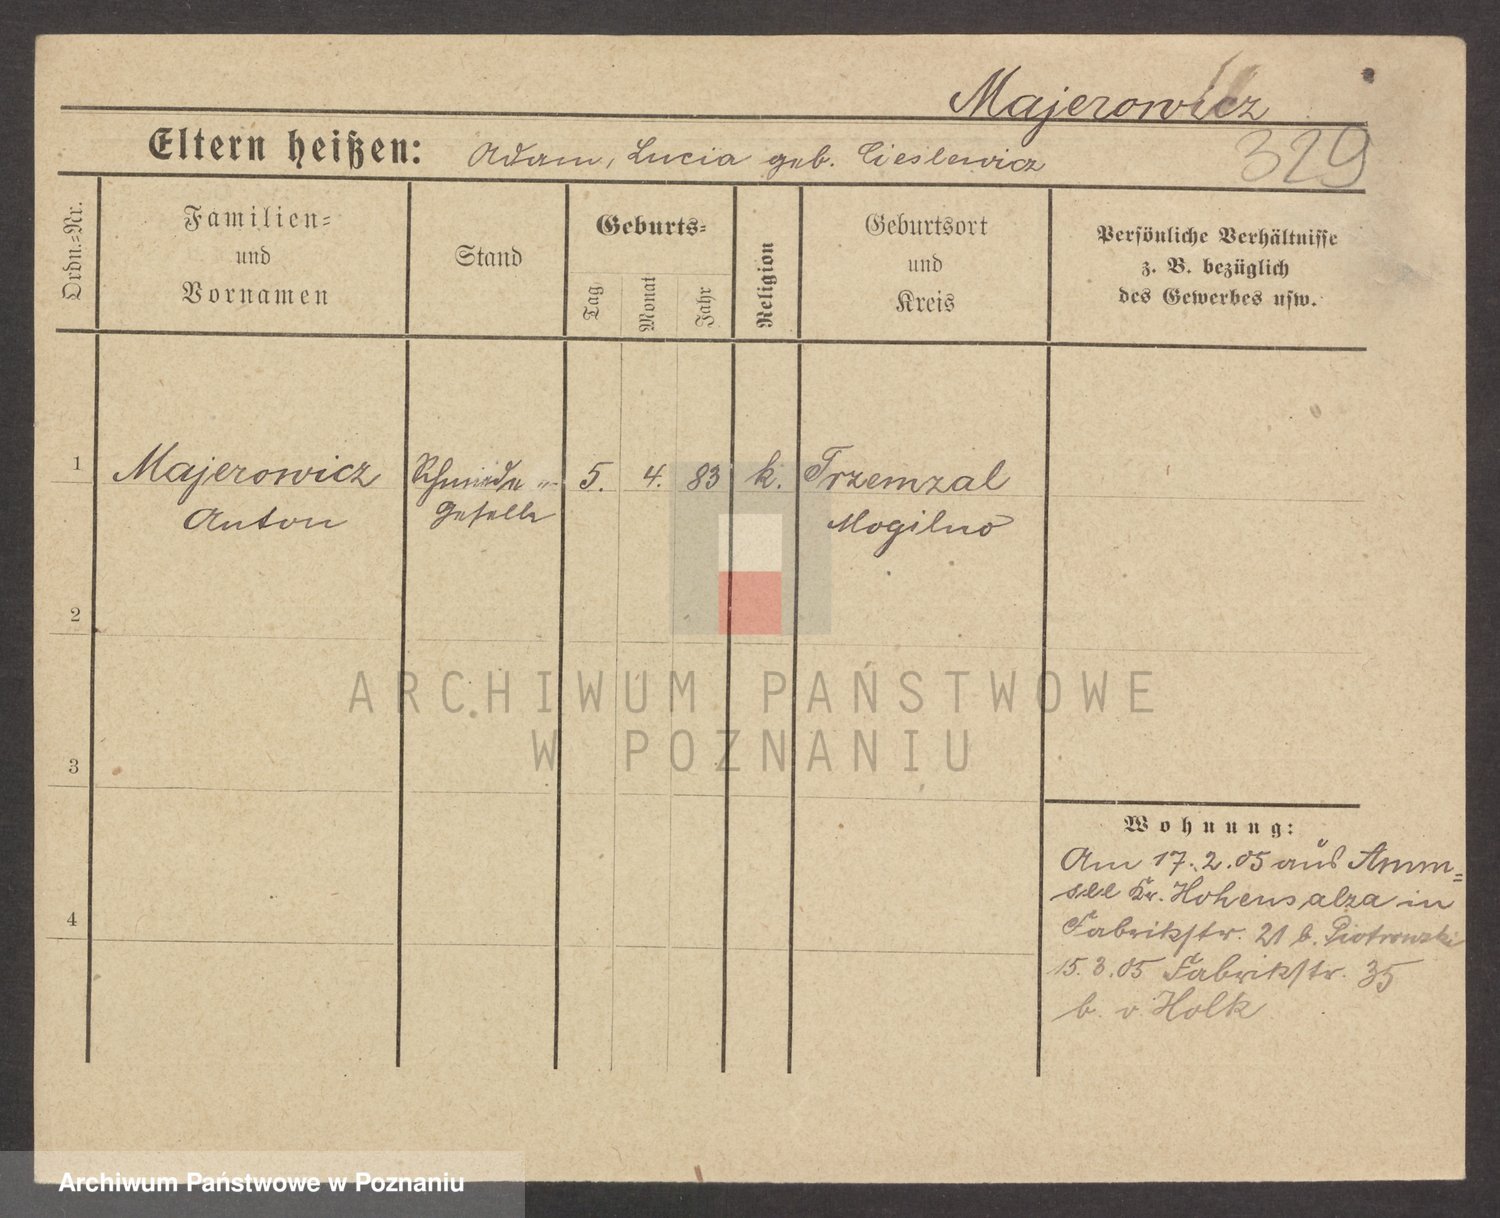 Majerowicz
329
Eltern heißen: Adam, Lucia geb. Cieslewicz
Ordn.-Nr.
Familien-
und
Vornamen
Stand
Geburts-
Tag
Monat
Jahr
Religion
Geburtsort
und
Kreis
Persönliche Verhältnisse
z. B. bezüglich
des Gewerbes usw.
1 Majerowicz Schmiede- 5. 4. 83 k. Trzemzal
Anton Geselle Mogilno
2
ARCHIWUM PAŃSTWOWE
W POZNANIU
3
Wohnung:
Am 17.2.05 aus Amm-
see Kr. Hohensalza in
Fabrikstr. 21 b. Piotrowski
15.3.05 Fabrikstr. 35
b. v Holk
4
Archiwum Państwowe w Poznaniu